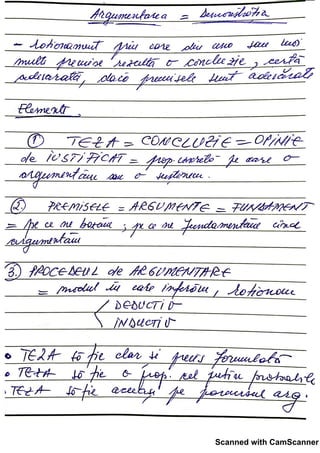 Argumentarea = Demonstrația
- raționament prin care din una sau mai
multe premise rezultă o concluzie, certă
adevarată, dacă premisele sunt adevărate
Elemente.
① TEZA = CONCLUZIE = OPINIE
de IUSTIFICAT = prop. concretă pe care o
argumentăm sau o susținem.
② PREMISELE = ARGUMENTE = FUNDAMENT
= pe ce ne bazăm ; pe ce ne fundamentăm când
argumentăm
3. PROCEDEUL de ARGUMENTARE
= modul în care inferăm, raționăm
DEDUCTIV
INDUCTIV
• TEZA să fie clar si precis formulată
• TEZA să fie o prop. cel puțin probabilă
• TEZA să fie aceeași pe parcursul arg.
Scanned with CamScanner